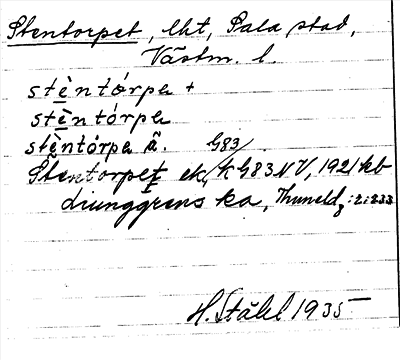 Stentorpet, lht, Sala stad,
Västm. l.
stèntórpa +
stèntórpa
stèntórpa â. G83/
Stentorpet ek, k G83 NV, 1921 kb
Ljunggrens ka, Thuneld, : 2:233
H. Ståhl 1935